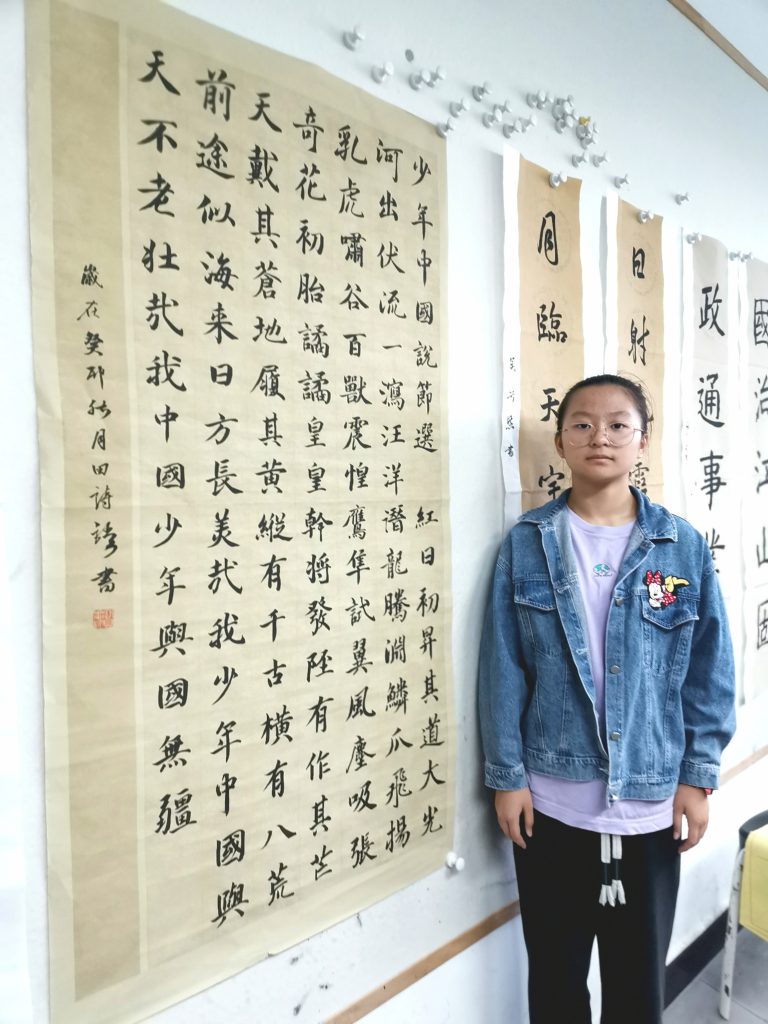 少年中國說節選 紅日初昇其道大光
河出伏流一瀉汪洋潛龍騰淵鱗爪飛揚
乳虎嘯谷百獸震惶鷹隼試翼風塵吸張
奇花初胎譎譎皇皇幹將發陘有作其芒
天戴其蒼地履其黃縱有千古橫有八荒
前途似海来日方長美哉我少年中國與
天不老壯哉我中國少年與國無疆
歲在癸卯秋月田詩書
國治江山固
政通事業
日射
月臨天宇